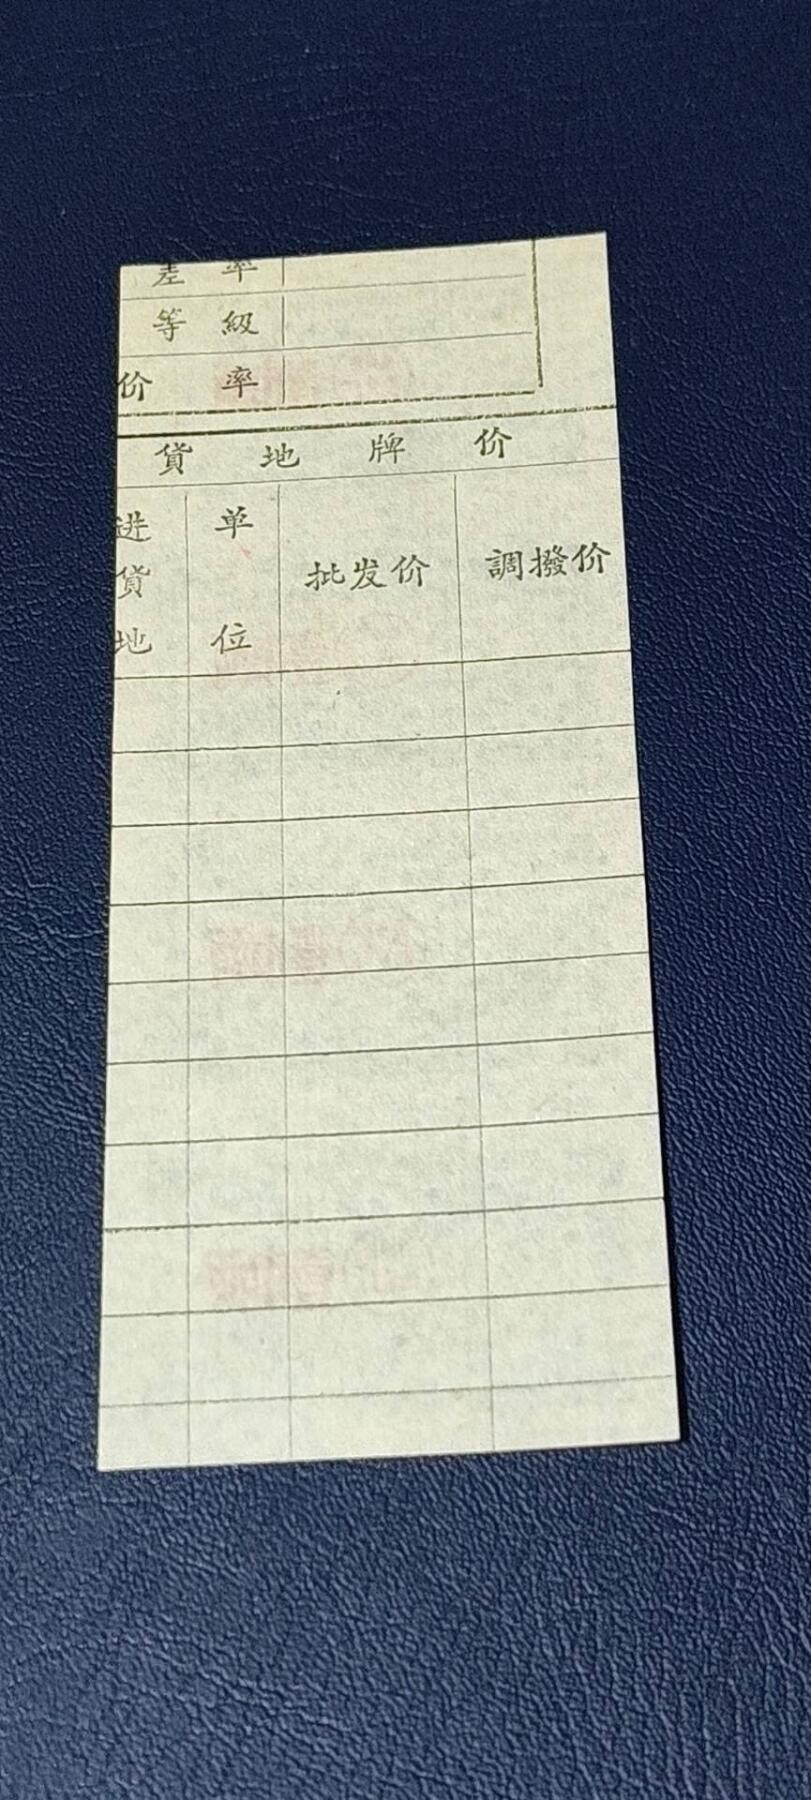 差 率
等 級
价 率
貨 地 牌 价
进貨地
单位
批发价
調撥价